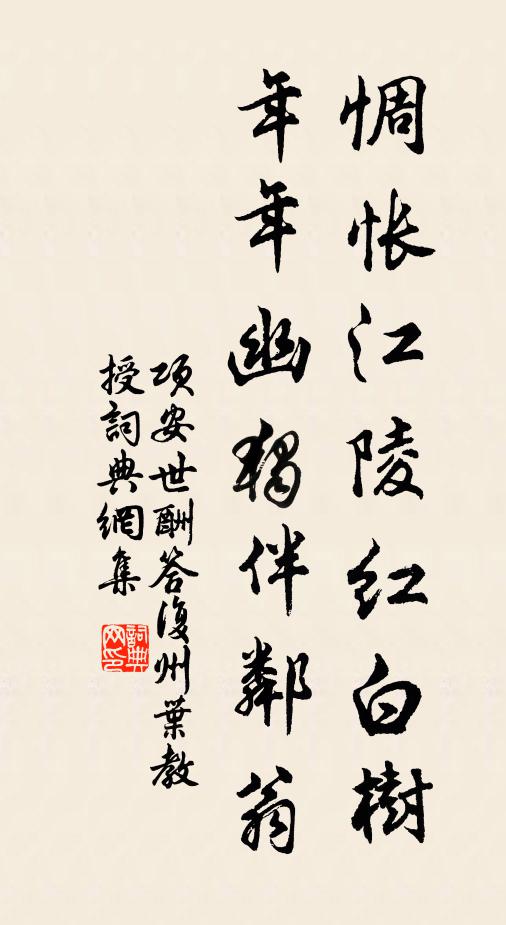 惆悵江陵紅白樹
年年幽獨伴鄰翁
項安世酬答復州葉教
授詞典網集
詞典
网印